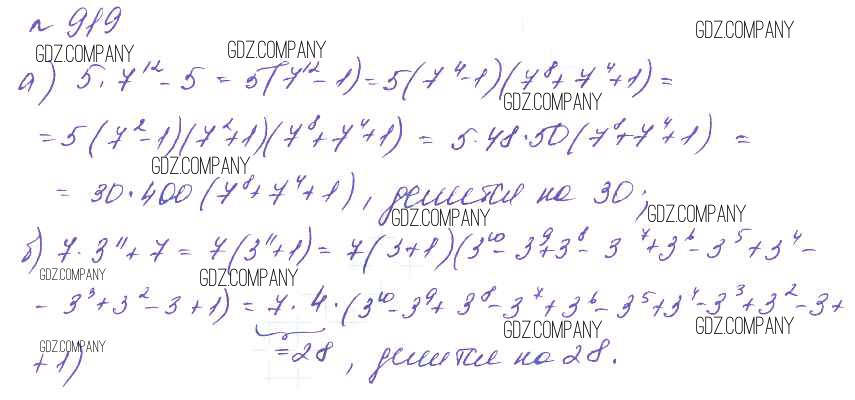 № 919
GDZ.COMPANY
GDZ.COMPANY GDZ.COMPANY
а) 5·7¹² - 5 = 5(7¹² - 1) = 5(7⁴ - 1)(7⁸ + 7⁴ + 1) =
GDZ.COMPANY
= 5(7² - 1)(7² + 1)(7⁸ + 7⁴ + 1) = 5·48·50(7⁸ + 7⁴ + 1) =
GDZ.COMPANY
= 30·400(7⁸ + 7⁴ + 1), делится на 30;
GDZ.COMPANY GDZ.COMPANY
б) 7·3¹¹ + 7 = 7(3¹¹ + 1) = 7(3 + 1)(3¹⁰ - 3⁹ + 3⁸ - 3⁷ + 3⁶ - 3⁵ + 3⁴ -
GDZ.COMPANY GDZ.COMPANY
- 3³ + 3² - 3 + 1) = 7·4·(3¹⁰ - 3⁹ + 3⁸ - 3⁷ + 3⁶ - 3⁵ + 3⁴ - 3³ + 3² - 3 +
GDZ.COMPANY GDZ.COMPANY GDZ.COMPANY
+ 1) =28, делится на 28.